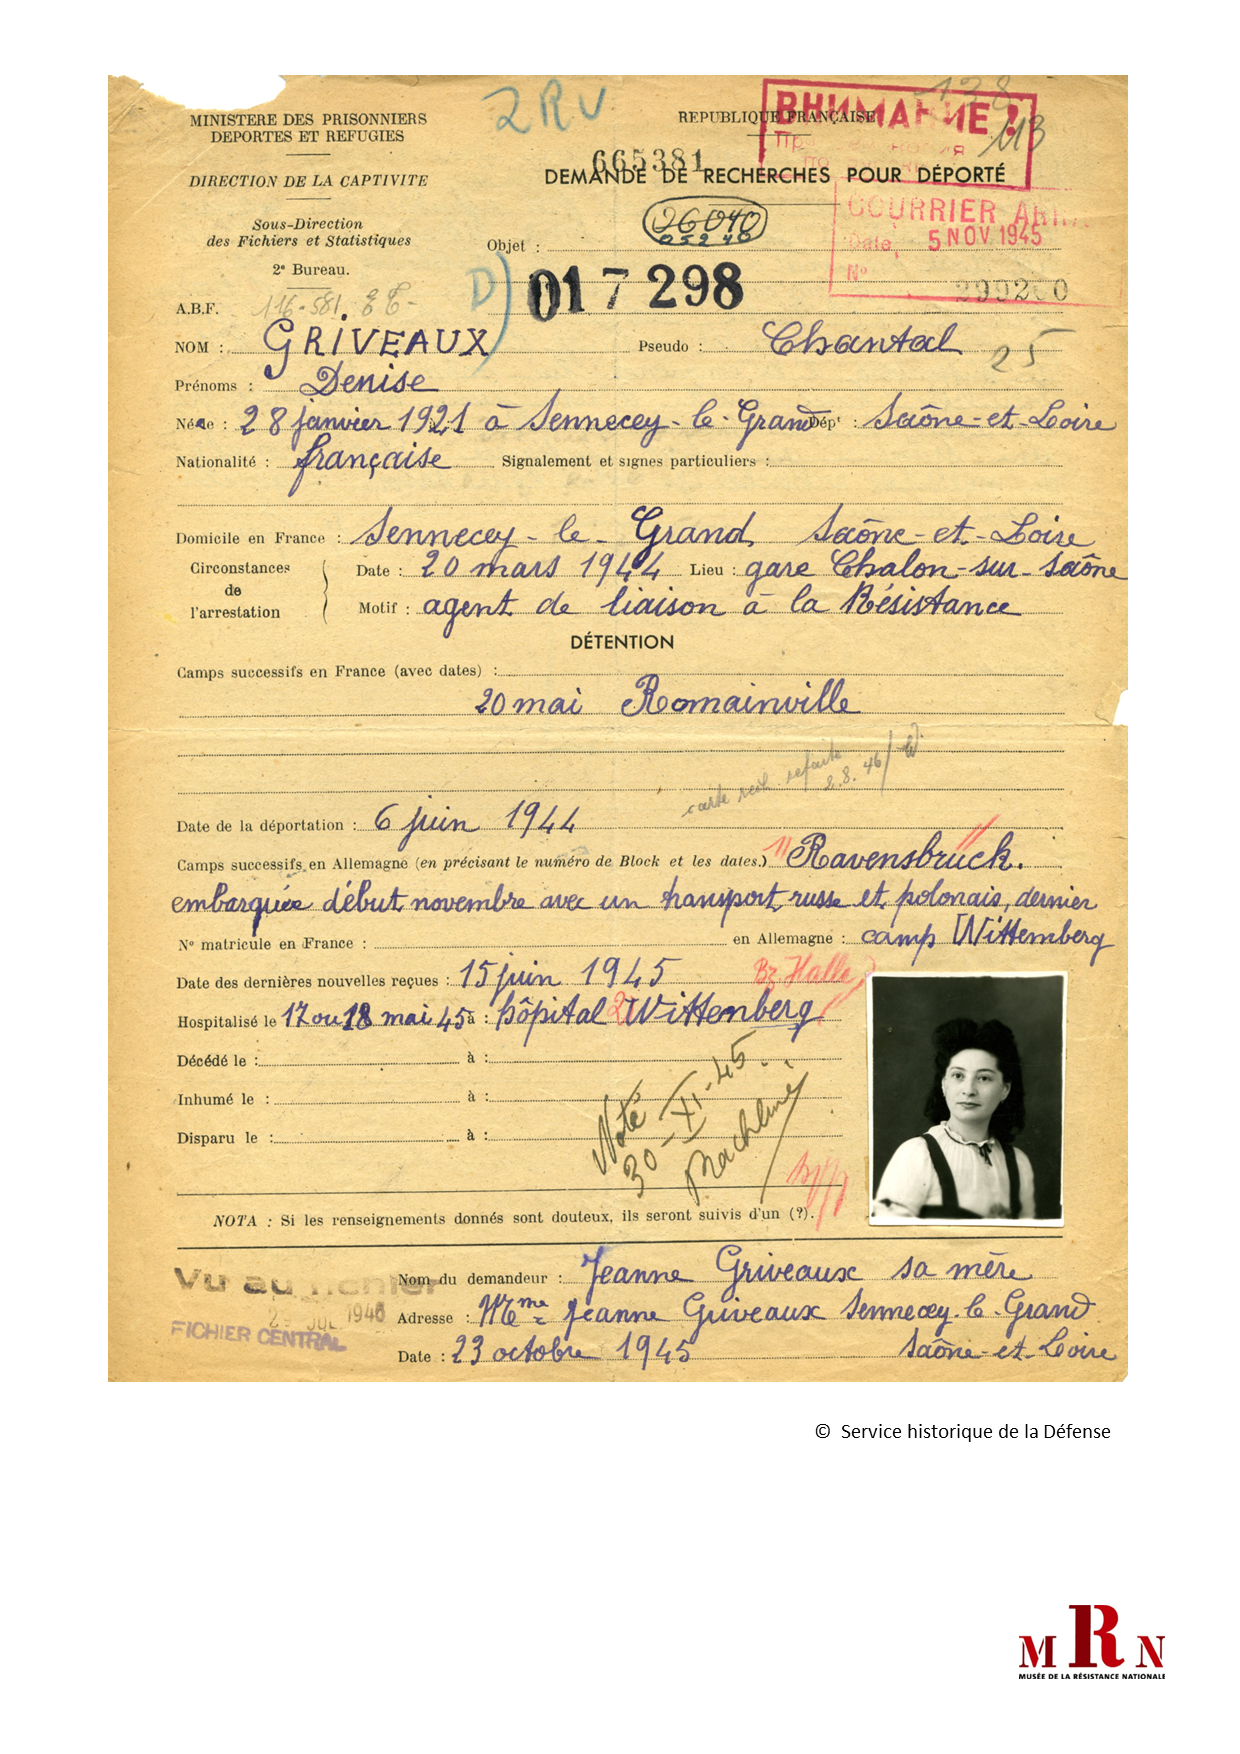 MINISTERE DES PRISONNIERS
DEPORTES ET REFUGIES
DIRECTION DE LA CAPTIVITE
Sous-Direction
des Fichiers et Statistiques
2e Bureau.
A.B.F. 116-581
2RV
REPUBLIQUE FRANÇAISE
ВНИМАНИЕ!
138
113
665381
DEMANDE DE RECHERCHES POUR DÉPORTÉ
COURRIER
Date, 5 NOV 1945
No
Objet :
26040
05240
D)
017298
NOM : GRIVEAUX Pseudo : Chantal
25
Prénoms : Denise
Née : 28 janvier 1921 à Sennecey-le-Grand Dépt : Saône-et-Loire
Nationalité : française Signalement et signes particuliers :
Domicile en France : Sennecey-le-Grand Saône-et-Loire
Circonstances de l'arrestation
Date : 20 mars 1944 Lieu : gare Chalon-sur-Saône
Motif : agent de liaison à la Résistance
DÉTENTION
Camps successifs en France (avec dates) :
20 mai Romainville
carte refaite
2.8.46
Date de la déportation : 6 juin 1944
Camps successifs en Allemagne (en précisant le numéro de Block et les dates.) Ravensbrück.
embarquée début novembre avec un transport russe et polonais, dernier
No matricule en France : en Allemagne : camp Wittemberg
Date des dernières nouvelles reçues : 15 juin 1945
Bz. Halle
Hospitalisé le 17 ou 18 mai 45 à : hôpital Wittenberg
Décédé le : à :
Inhumé le : à :
Disparu le : à :
Noté
30-XI-45
NOTA : Si les renseignements donnés sont douteux, ils seront suivis d'un (?).
Vu au fichier
1946
FICHIER CENTRAL
Nom du demandeur : Jeanne Griveaux sa mère
Adresse : Mme Jeanne Griveaux Sennecey-le-Grand
Date : 23 octobre 1945 Saône-et-Loire
© Service historique de la Défense
MRN
MUSÉE DE LA RÉSISTANCE NATIONALE